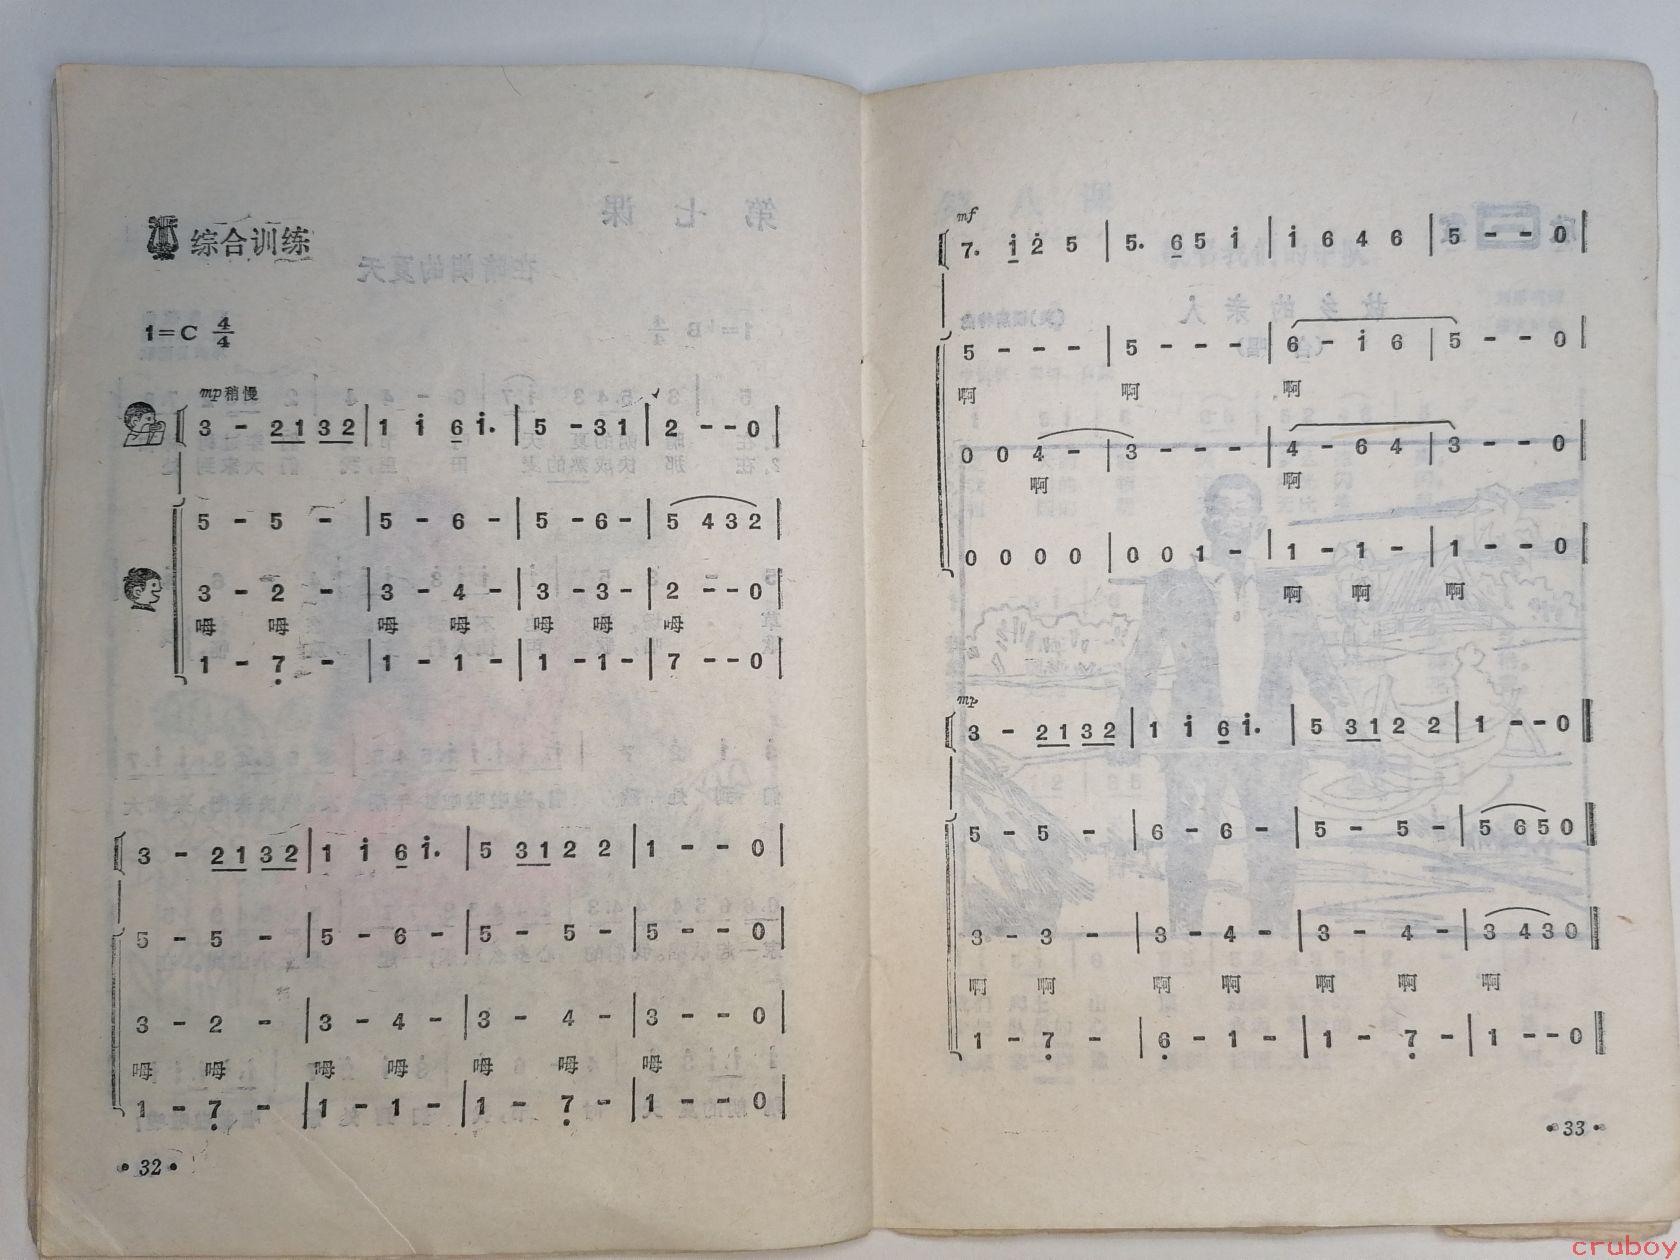 综合训练
1=C 4/4
mp稍慢
3 - 2 1 3 2 | 1 i 6 i. | 5 - 3 1 | 2 - - 0 |
5 - 5 - | 5 - 6 - | 5 - 6 - | 5 4 3 2 |
3 - 2 - | 3 - 4 - | 3 - 3 - | 2 - - 0 |
呣 呣 呣 呣 呣 呣 呣
1 - 7 - | 1 - 1 - | 1 - 1 - | 7 - - 0 |
3 - 2 1 3 2 | 1 i 6 i. | 5 3 1 2 2 | 1 - - 0 |
5 - 5 - | 5 - 6 - | 5 - 5 - | 5 - - 0 |
3 - 2 - | 3 - 4 - | 3 - 4 - | 3 - - 0 |
呣 呣 呣 呣 呣 呣 呣
1 - 7 - | 1 - 1 - | 1 - 7 - | 1 - - 0 |
• 32 •
mf
7. i 2 5 | 5. 6 5 i | i 6 4 6 | 5 - - 0 |
5 - - - | 5 - - - | 6 - i 6 | 5 - - 0 |
啊 啊 啊
0 0 4 - | 3 - - - | 4 - 6 4 | 3 - - 0 |
啊 啊
0 0 0 0 | 0 0 1 - | 1 - 1 - | 1 - - 0 |
啊 啊 啊
mp
3 - 2 1 3 2 | 1 i 6 i. | 5 3 1 2 2 | 1 - - 0
5 - 5 - | 6 - 6 - | 5 - 5 - | 5 6 5 0
3 - 3 - | 3 - 4 - | 3 - 4 - | 3 4 3 0
啊 啊 啊 啊 啊 啊 啊
1 - 7 - | 6 - 1 - | 1 - 7 - | 1 - - 0
• 33 •
cruboy